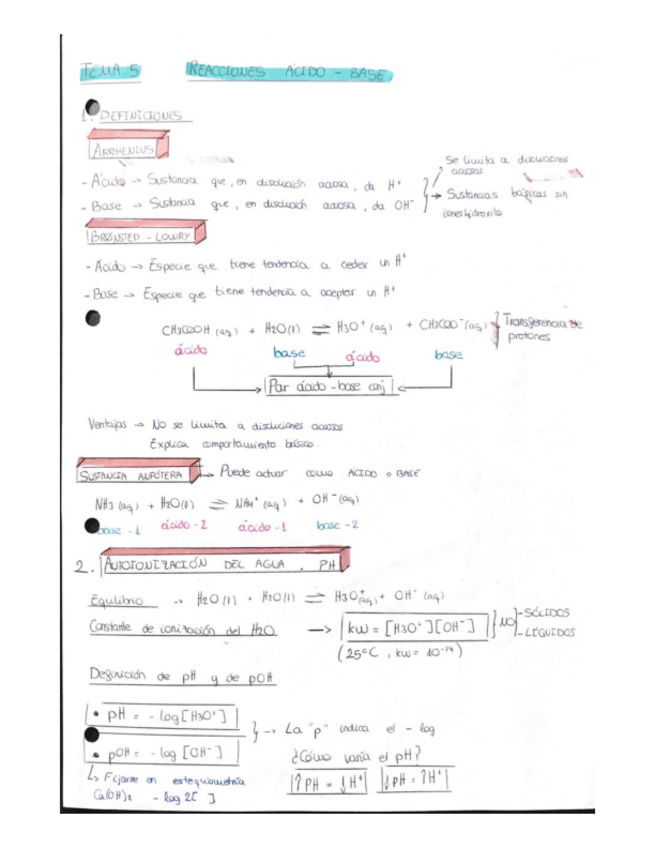 TEMA 5 REACCIONES ÁCIDO - BASE
1. DEFINICIONES
ARRHENIUS
- Ácido → Sustancia que, en disolución acuosa, da H⁺
- Base → Sustancia que, en disolución acuosa, da OH⁻
Se limita a disoluciones
acuosas
→ Sustancias básicas sin
iones hidroxilo
BRØNSTED - LOWRY
- Ácido → Especie que tiene tendencia a ceder un H⁺
- Base → Especie que tiene tendencia a aceptar un H⁺
CH3COOH (aq) + H2O(l) ⇌ H3O⁺ (aq) + CH3COO⁻(aq)
Transferencia de
protones
ácido base ácido base
Par ácido-base conj
Ventajas → No se limita a disoluciones acuosas
Explica comportamiento básico.
SUSTANCIA ANFÓTERA → Puede actuar como ÁCIDO o BASE
NH3 (aq) + H2O(l) ⇌ NH4⁺ (aq) + OH⁻(aq)
base-1 ácido-2 ácido-1 base-2
2. AUTOIONIZACIÓN DEL AGUA. PH
Equilibrio → H2O(l) + H2O(l) ⇌ H3O⁺(aq) + OH⁻ (aq)
Constante de ionización del H2O → Kw = [H3O⁺][OH⁻] NO - SÓLIDOS
- LÍQUIDOS
(25°C, Kw = 10⁻¹⁴)
Definición de pH y de pOH
• pH = - log [H3O⁺]
• pOH = - log [OH⁻]
→ La "p" indica el - log
¿Cómo varía el pH?
↑PH = ↓H⁺ ↓pH = ↑H⁺
↳ Fijarse en estequiometría
Ca(OH)2 - log 2[ ]